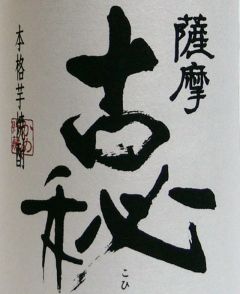 薩摩
古秘
こひ
本格芋焼酎